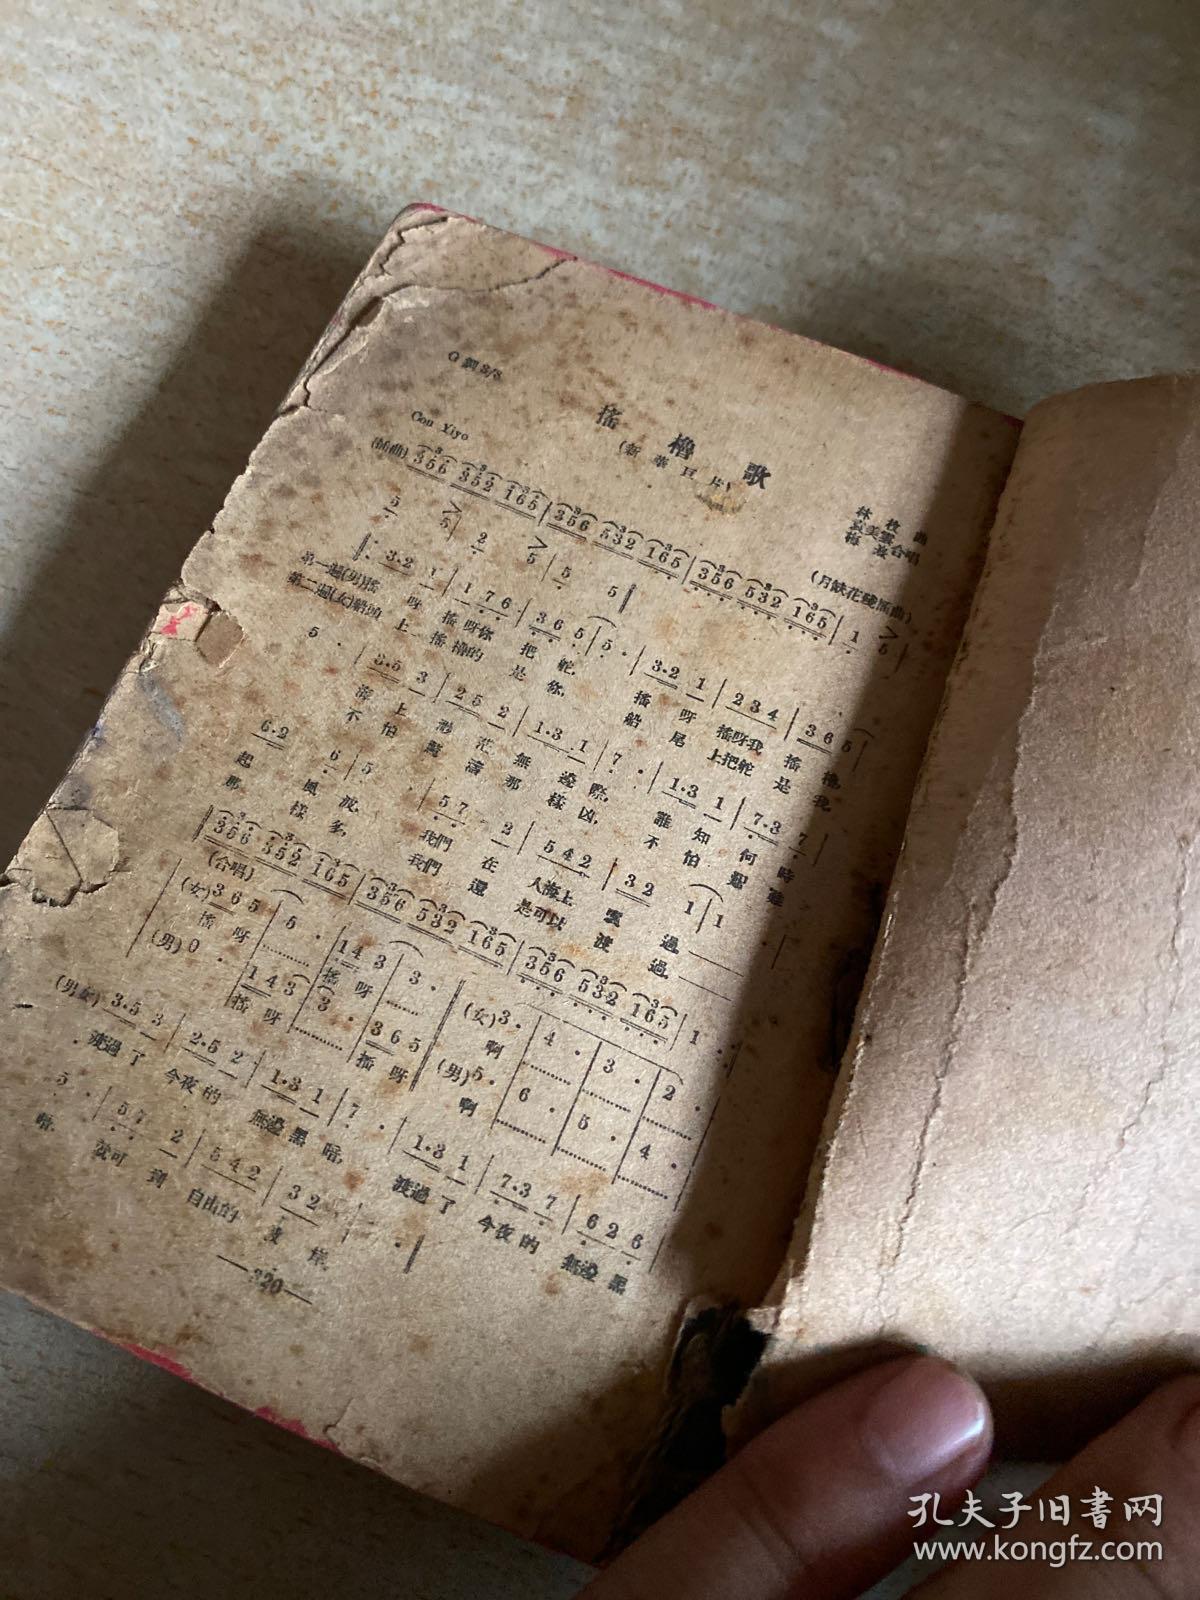 搖櫓歌
(新華巨片)
G調3/8
Con Yiyo
林枚曲
梅 合唱
(月缺花殘插曲)
(前曲) 356 352 165 | 356 532 165 | 356 532 165 | 1 5 |
5 5 | 2 5 | 5 5 ‖
‖: 3·2 1 | 1 7 6 | 3 6 5 | 5 · | 3·2 1 | 2 3 4 | 3 6 5 |
第一遍(男)搖 呀 搖呀你 把 舵, 搖 呀 搖呀我 搖 櫓,
第二遍(女)船頭 上 搖櫓的 是 你, 船 尾 上把舵 是 我,
5 · | 3·5 3 | 2 5 2 | 1·3 1 | 7 · | 1·3 1 | 7·3 7 |
海 上 渺 茫 無 邊 際, 誰 知 何 時
不 怕 萬 濤 那 樣 凶, 不 怕 艱 難
6·2 6 | 5 · | 5 7 2 | 5 4 2 | 3 2 1 | 1 · |
起 風 波, 我們 在 人海上 過,
那 樣 多, 我們 還 是可以 渡 過,
‖ 356 352 165 | 356 532 165 | 356 532 165 | 1 · :
(合唱)
(女) 3 6 5 | 5 · | 1 4 3 | 3 ·
搖 呀 搖 呀
(男) 0 · | 1 4 3 | 3 · | 3 6 5
搖 呀 搖 呀
(女) 3 · | 4 · | 3 · | 2 ·
啊
(男) 5 · | 6 · | 5 · | 4 ·
啊
(男女) 3·5 3 | 2·5 2 | 1·3 1 | 7 · | 1·3 1 | 7·3 7 | 6 2 6
渡過了 今夜的 無邊黑 暗, 渡過了 今夜的 無邊黑
5 · | 5 7 2 | 5 4 2 | 3 2
暗, 就可 到 自由的 岸
—320—
孔夫子旧书网
www.kongfz.com